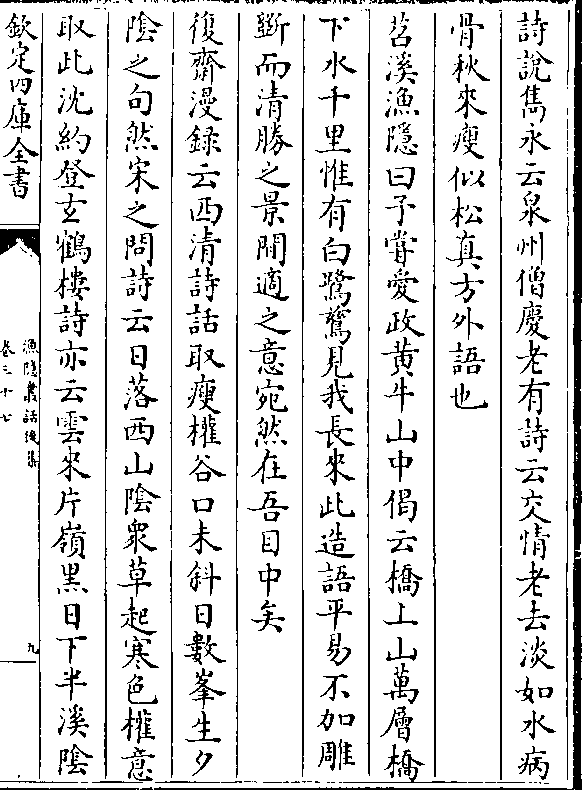 詩說雋永云泉州僧慶老有詩云交情老去淡如水病
骨秋來瘦似松真方外語也
苕溪漁隱曰予嘗愛政黄牛山中偈云橋上山萬層橋
下水千里惟有白鷺鷥見我長來此造語平易不加雕
斵而清勝之景閒適之意宛然在吾目中矣
復齋漫録云西清詩話取瘦權谷口未斜日數峯生夕
隂之句然宋之問詩云日落西山隂衆草起寒色權意
取此沈約登玄鶴樓詩亦云雲來片嶺黒日下半溪隂
欽定四庫全書
漁隱叢話後集
卷三十七
九